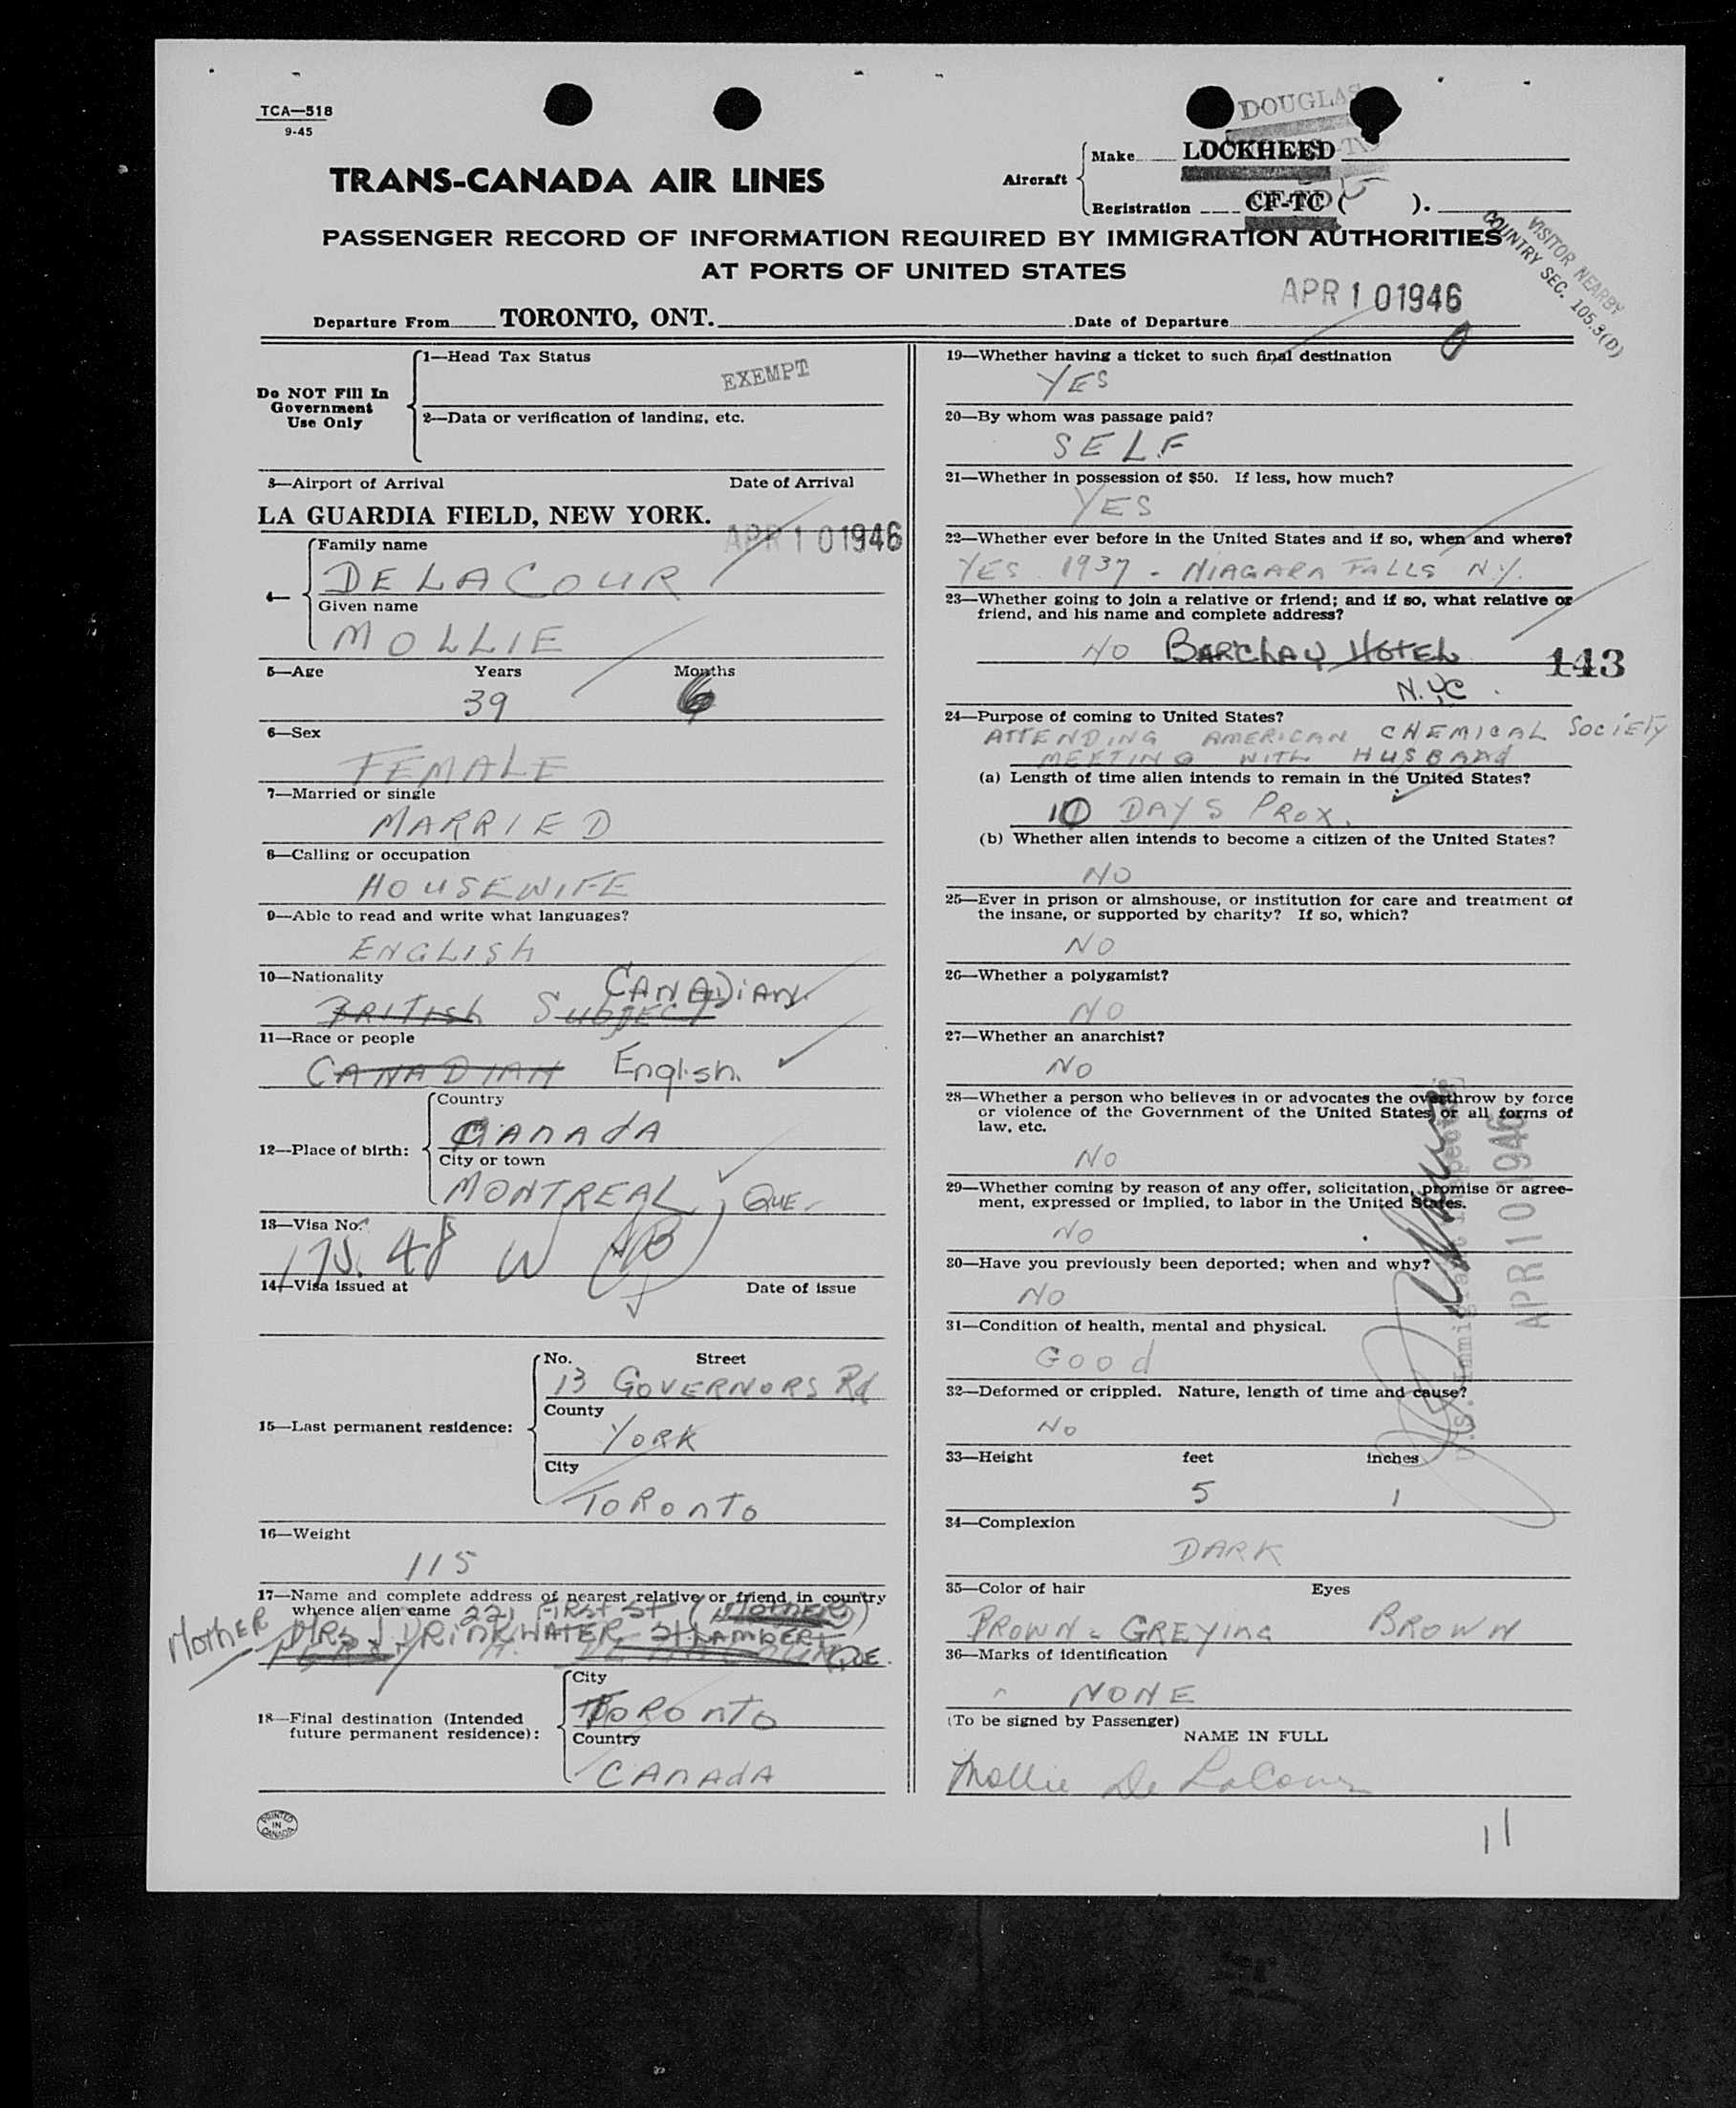 TCA—518
9-45
DOUGLAS
TRANS-CANADA AIR LINES
Aircraft
Make LOCKHEED
Registration CF-TC ( ).
PASSENGER RECORD OF INFORMATION REQUIRED BY IMMIGRATION AUTHORITIES
AT PORTS OF UNITED STATES
VISITOR NEARBY
COUNTRY SEC. 105.3(D)
APR 10 1946
Departure From TORONTO, ONT. Date of Departure
Do NOT Fill In
Government
Use Only
1—Head Tax Status
EXEMPT
2—Data or verification of landing, etc.
3—Airport of Arrival Date of Arrival
LA GUARDIA FIELD, NEW YORK.
APR 10 1946
4—
Family name
DE LACOUR
Given name
MOLLIE
5—Age Years Months
39 6
6—Sex
FEMALE
7—Married or single
MARRIED
8—Calling or occupation
HOUSEWIFE
9—Able to read and write what languages?
ENGLISH
10—Nationality
CANADIAN.
BRITISH SUBJECT
11—Race or people
CANADIAN English.
12—Place of birth:
Country
CANADA
City or town
MONTREAL, QUE-
13—Visa No.
48 W
14—Visa issued at Date of issue
15—Last permanent residence:
No. Street
13 GOVERNORS Rd
County
YORK
City
TORONTO
16—Weight
115
17—Name and complete address of nearest relative or friend in country
whence alien came 221 FIRST ST (MOTHER)
MOTHER MRS J DRINKWATER ST LAMBERT
PERCY A. DE LACOUR QUE.
18—Final destination (Intended
future permanent residence):
City
TORONTO
Country
CANADA
PRINTED
IN
CANADA
19—Whether having a ticket to such final destination
YES
20—By whom was passage paid?
SELF
21—Whether in possession of $50. If less, how much?
YES
22—Whether ever before in the United States and if so, when and where?
YES. 1937 - NIAGARA FALLS N.Y.
23—Whether going to join a relative or friend; and if so, what relative or
friend, and his name and complete address?
NO BARCLAY HOTEL 143
N.Y.C.
24—Purpose of coming to United States?
ATTENDING AMERICAN CHEMICAL SOCIETY
MEETING WITH HUSBAND
(a) Length of time alien intends to remain in the United States?
10 DAYS PROX.
(b) Whether alien intends to become a citizen of the United States?
NO
25—Ever in prison or almshouse, or institution for care and treatment of
the insane, or supported by charity? If so, which?
NO
26—Whether a polygamist?
NO
27—Whether an anarchist?
NO
28—Whether a person who believes in or advocates the overthrow by force
or violence of the Government of the United States or all forms of
law, etc.
NO
29—Whether coming by reason of any offer, solicitation, promise or agree-
ment, expressed or implied, to labor in the United States.
NO
30—Have you previously been deported; when and why?
NO
31—Condition of health, mental and physical.
GOOD
32—Deformed or crippled. Nature, length of time and cause?
NO
U.S. Immigrant Inspector
APR 10 1946
33—Height feet inches
5 1
34—Complexion
DARK
35—Color of hair Eyes
BROWN - GREYING BROWN
36—Marks of identification
NONE
(To be signed by Passenger)
NAME IN FULL
Mollie De LaCour
11